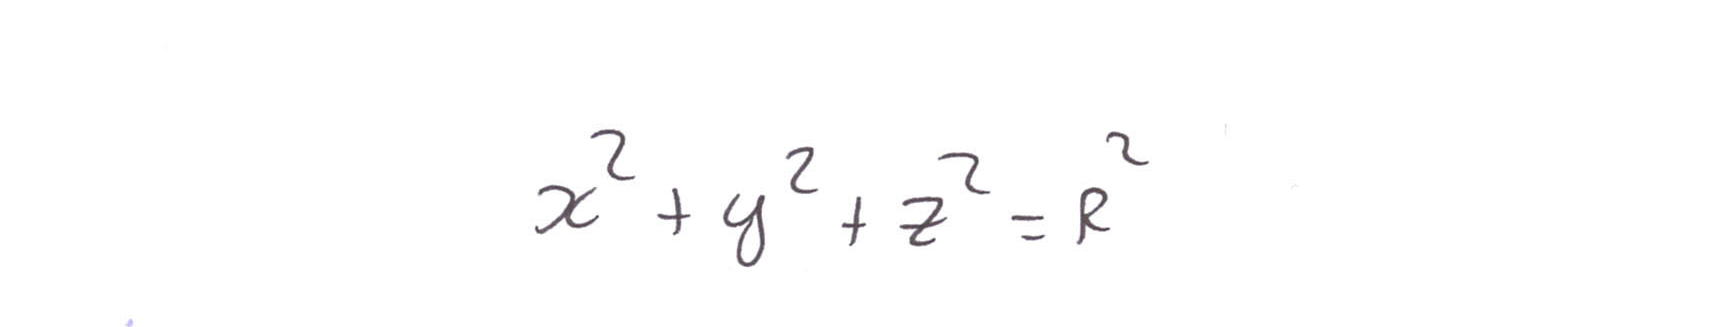 x² + y² + z² = R²